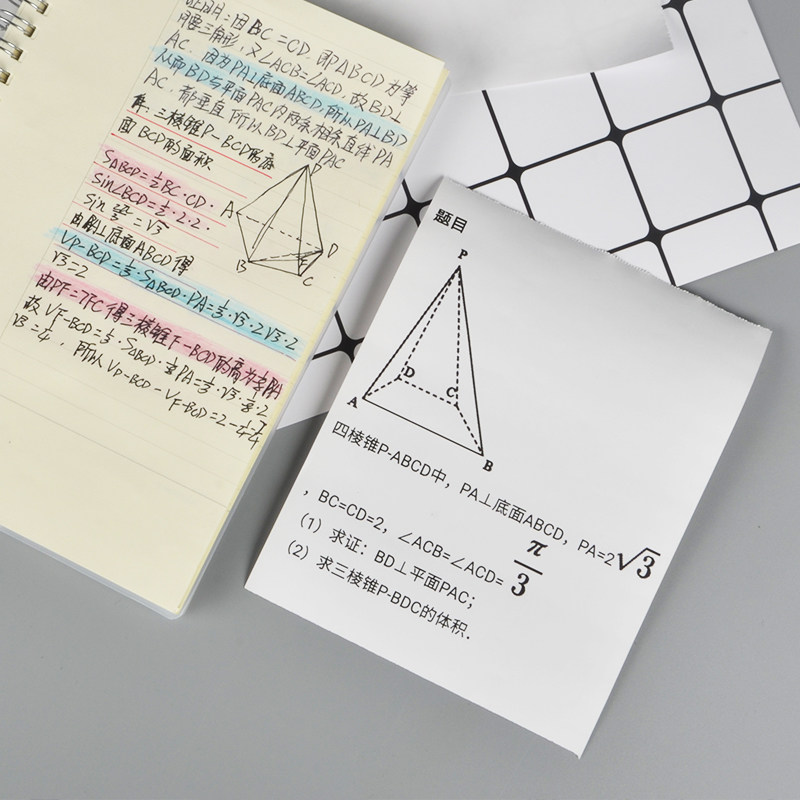 证明:因BC=CD,即ABCD为等
腰三角形,又∠ACB=∠ACD,故BD⊥
AC.因为PA⊥底面ABCD,所从PA⊥BD
从而BD与平面PAC内两条相条直伐PA
AC.都垂直所从BD⊥平面PAC
三棱锥P-BCD的底
面BCD的面积
S△BCD=½BC·CD·
sin∠BCD=½·2·2·
sin 2π/3=√3
PA⊥底面ABCD得
VP-BCD=⅓·S△BCD·PA=⅓·√3·2√3·2
√3=2
由PF=7FC得三棱锥F-BCD的高为⅛PA
故VF-BCD=⅓·S△BCD·⅛PA=⅓·√3·⅛·2
√3=¼,所从VP-BCD-VF-BCD=2-¼=7/4
P
A
B
C
D
F
题目
P
D
C
A
B
四棱锥P-ABCD中,PA⊥底面ABCD,PA=2√3
,BC=CD=2,∠ACB=∠ACD=π/3
(1)求证:BD⊥平面PAC;
(2)求三棱锥P-BDC的体积.